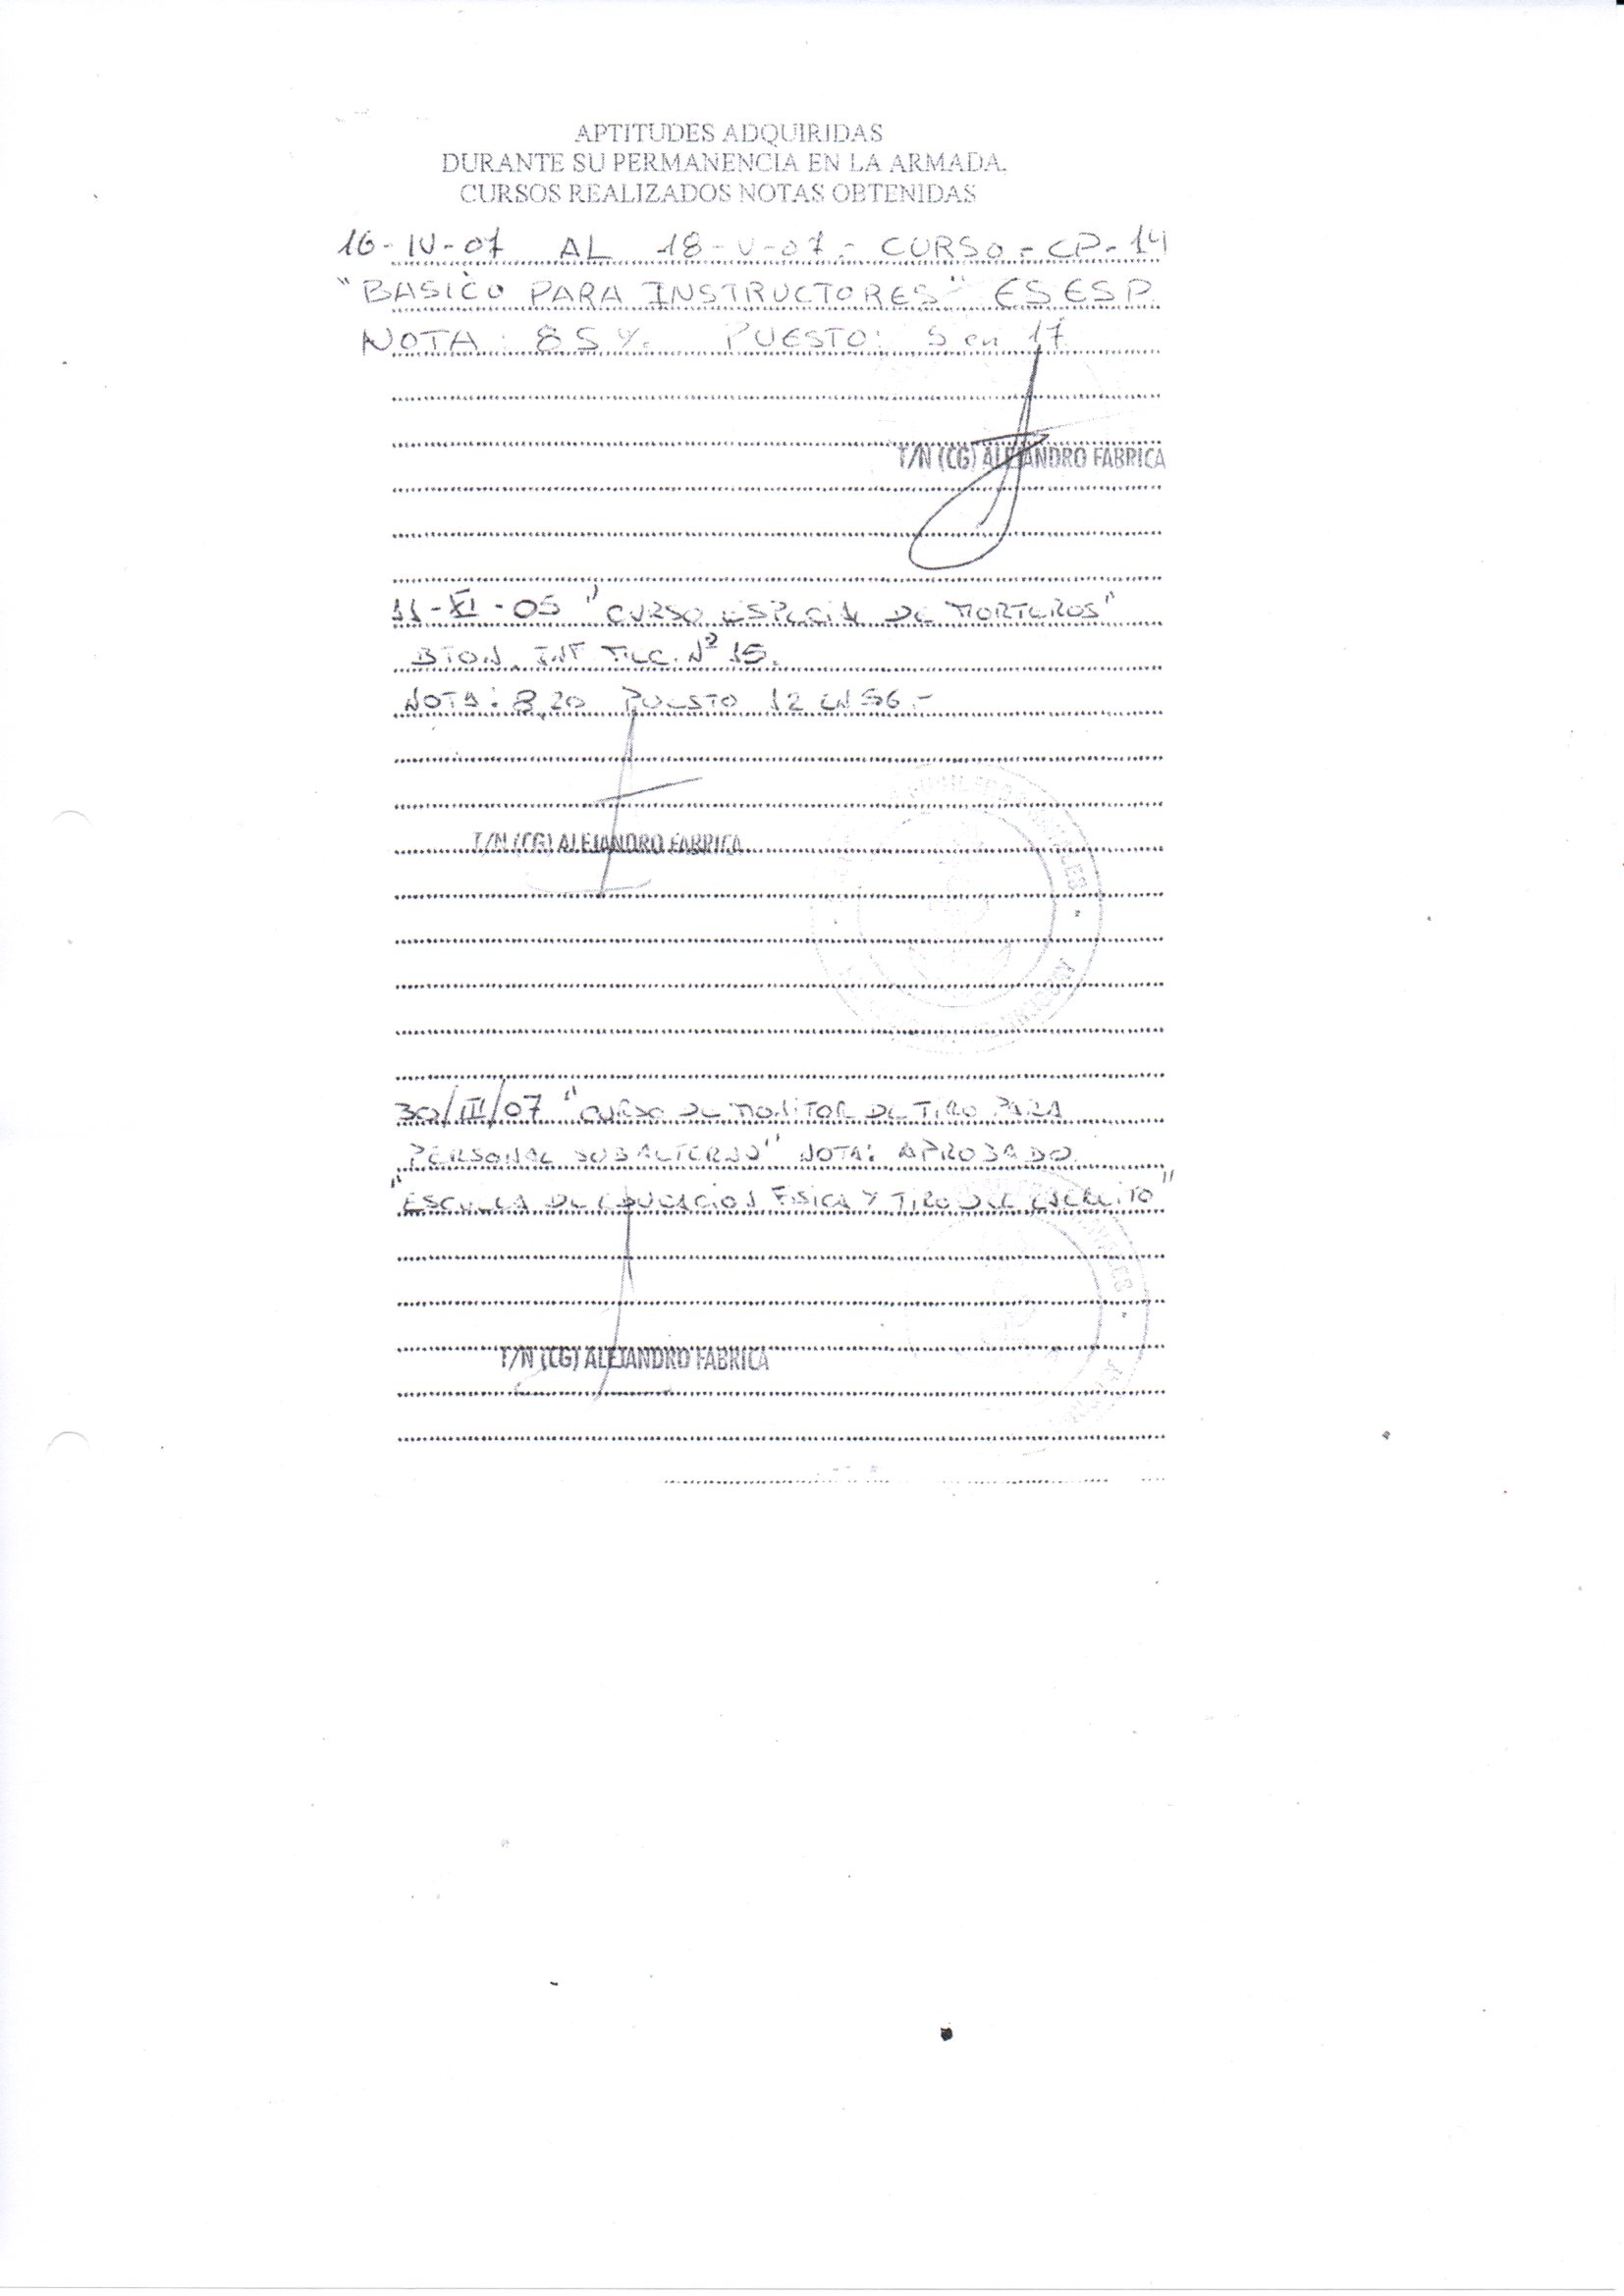 APTITUDES ADQUIRIDAS
DURANTE SU PERMANENCIA EN LA ARMADA.
CURSOS REALIZADOS NOTAS OBTENIDAS
16-IV-07 AL 18-V-07.- CURSO.- CP-14
"BASICO PARA INSTRUCTORES" ESESP.
NOTA: 85%. PUESTO: 5 en 17.
T/N (CG) ALEJANDRO FABRICA
11-XI-05 "CURSO ESPECIAL DE MORTEROS"
BTON. INF MEC. Nº 15.
NOTA: 8,20 PUESTO 12 EN 56.-
T/N (CG) ALEJANDRO FABRICA
30/III/07 "CURSO DE MONITOR DE TIRO PARA
PERSONAL SUBALTERNO" NOTA: APROBADO.
"ESCUELA DE EDUCACION FISICA Y TIRO DEL EJERCITO"
T/N (CG) ALEJANDRO FABRICA